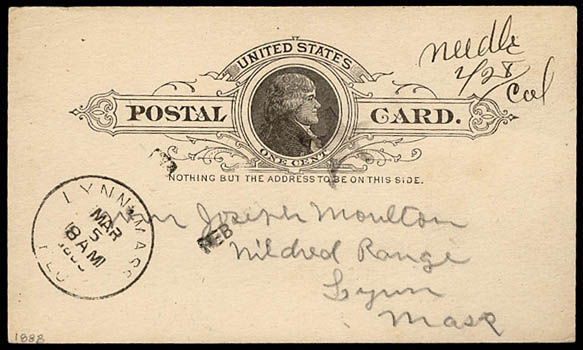 UNITED STATES
POSTAL CARD.
ONE CENT
NOTHING BUT THE ADDRESS TO BE ON THIS SIDE.
Needle
2/28
Cal
LYNN MASS
MAR
5
8 AM
REC
FEB
Joseph Moulton
Mildred Range
Lynn
Mass
1888